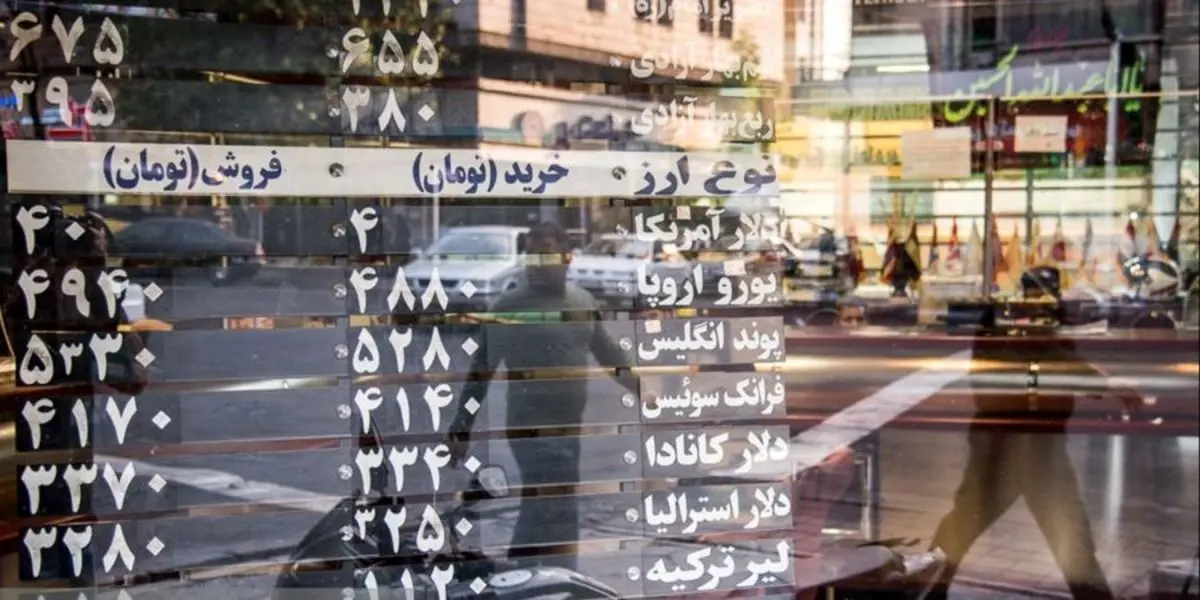 یا اباعبدالله الحسین
بهار آزادی ۶۵۵ ۶۷۵
ربع بهار آزادی ۳۸۰ ۳۹۵
نوع ارز خرید (تومان) فروش (تومان)
دلار آمریکا ۴ ۴۰
یورو اروپا ۴۸۸۰ ۴۹۴۰
پوند انگلیس ۵۲۸۰ ۵۳۳۰
فرانک سوئیس ۴۱۴۰ ۴۱۷۰
دلار کانادا ۳۳۴۰ ۳۳۷۰
دلار استرالیا ۳۲۵۰ ۳۲۸۰
لیر ترکیه ۱۱۲۰